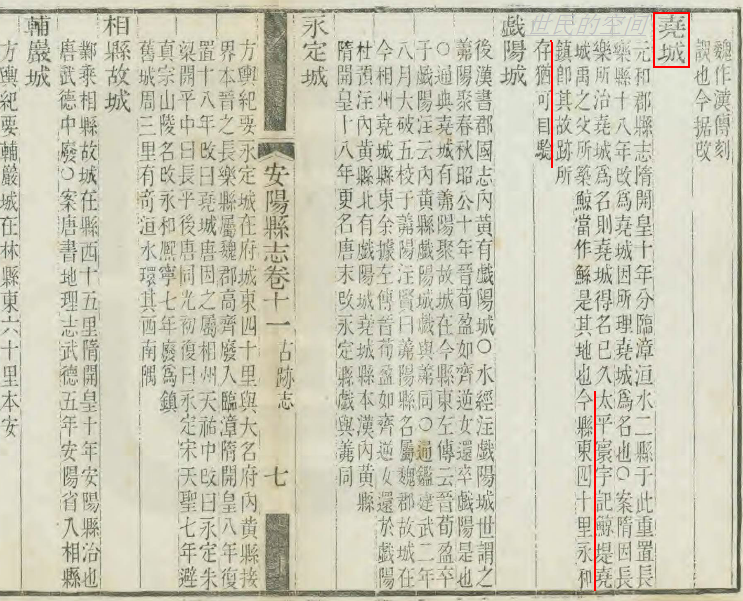 魏作漢傳刻
誤也今据改
堯城
元和郡縣志隋開皇十年分臨漳洹水二縣于此重置長
樂縣十八年改爲堯城因所理堯城爲名也○案隋因長
樂所治堯城爲名則堯城得名已久太平寰宇記鯨堤堯
城禹之父所築鯨當作鯀是其地也今縣東四十里永和
鎮卽其故跡所
存猶可目驗
世民的空间
戲陽城
後漢書郡國志內黃有戲陽城○水經注戲陽城世謂之
羛陽聚春秋昭公十年晉荀盈如齊逆女還卒戲陽是也
○通典堯城有羛陽聚故城在今縣東左傳云晉荀盈卒
于戲陽注云內黃縣戲陽城戲與羛同○通鑑建武二年
八月大破五校于羛陽注賢曰羛陽縣名屬魏郡故城在
今相州堯城縣東余據左傳晉荀盈如齊逆女還於戲陽
杜預注內黃縣北有戲陽城堯城縣本漢內黃縣
隋開皇十八年更名唐末改永定縣戲與羛同
永定城
安陽縣志卷十一 古跡志 七
方輿紀要永定城在府城東四十里與大名府內黃縣接
界本晉之長樂縣屬魏郡高齊廢入臨漳隋開皇八年復
置十八年改曰堯城唐因之屬相州天祐中改曰永定朱
梁開平中曰長平後唐同光初復曰永定宋天聖七年避
真宗山陵名改永和熈寧七年廢爲鎮
舊城周三里有奇洹水環其西南隅
相縣故城
鄴乘相縣故城在縣西十五里隋開皇十年安陽縣治也
唐武德中廢○案唐書地理志武德五年安陽省入相縣
輔巖城
方輿紀要輔巖城在林縣東六十里本安